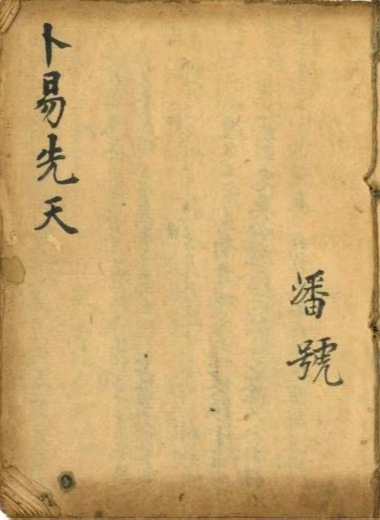 卜易先天
潘號